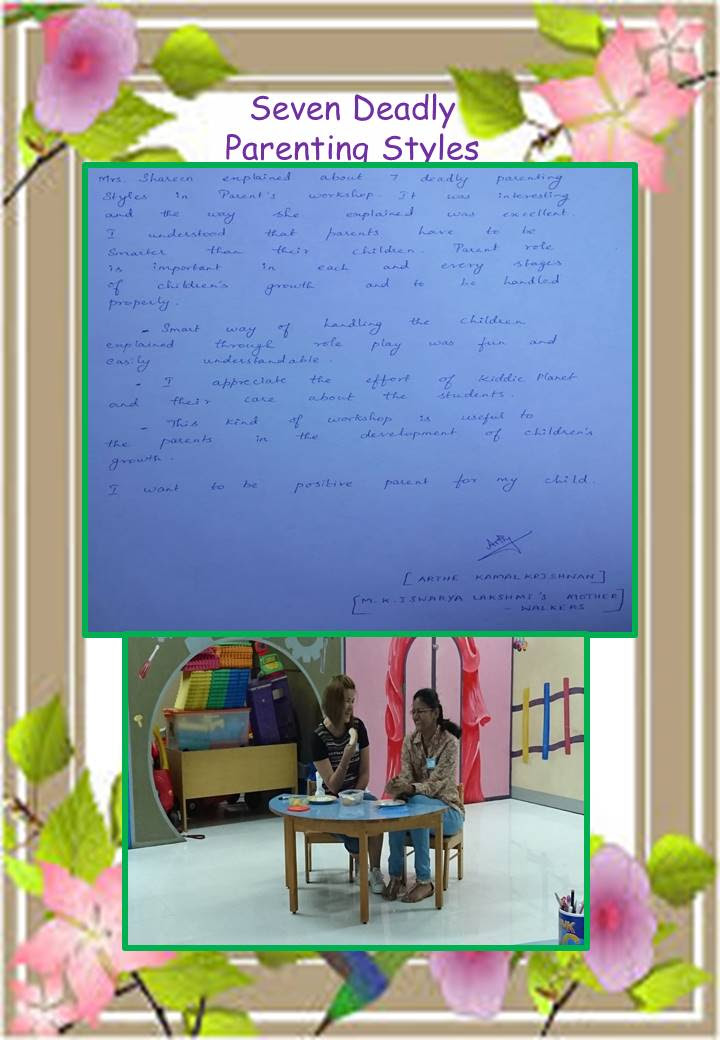 Seven Deadly
Parenting Styles
Mrs. Shareen explained about 7 deadly parenting
Styles in Parent's workshop. It was interesting
and the way she explained was excellent.
I understood that parents have to be
Smarter than their children. Parent role
is important in each and every stages
of children's growth and to be handled
properly.
- Smart way of handling the children
explained through role play was fun and
easily understandable.
- I appreciate the effort of Kiddie Planet
and their care about the students.
- This kind of workshop is useful to
the parents in the development of children's
growth.
I want to be positive parent for my child.
Arthe
[ARTHE KAMALKRISHNAN]
[M.K. ISWARYA LAKSHMI'S MOTHER
- WALKERS]